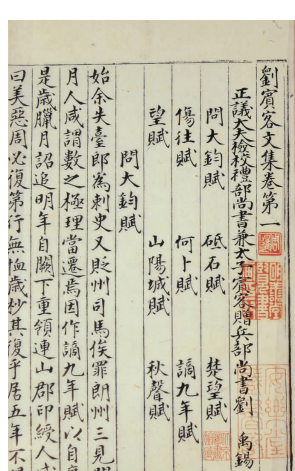 劉賓客文集卷第一
正議大夫檢校禮部尚書兼太子賓客贈兵部尚書劉 禹錫
問大鈞賦 砥石賦 楚望賦
傷往賦 何卜賦 謫九年賦
望賦 山陽城賦 秋聲賦
問大鈞賦
始余失臺郎為刺史又貶州司馬俟罪朗州三見閏
月人咸謂數之極理當遷焉因作謫九年賦以自廣
是歲臘月詔追明年自闕下重領連山郡印綬人咸
曰美惡周必復第行無恤歲杪其復乎居五年不